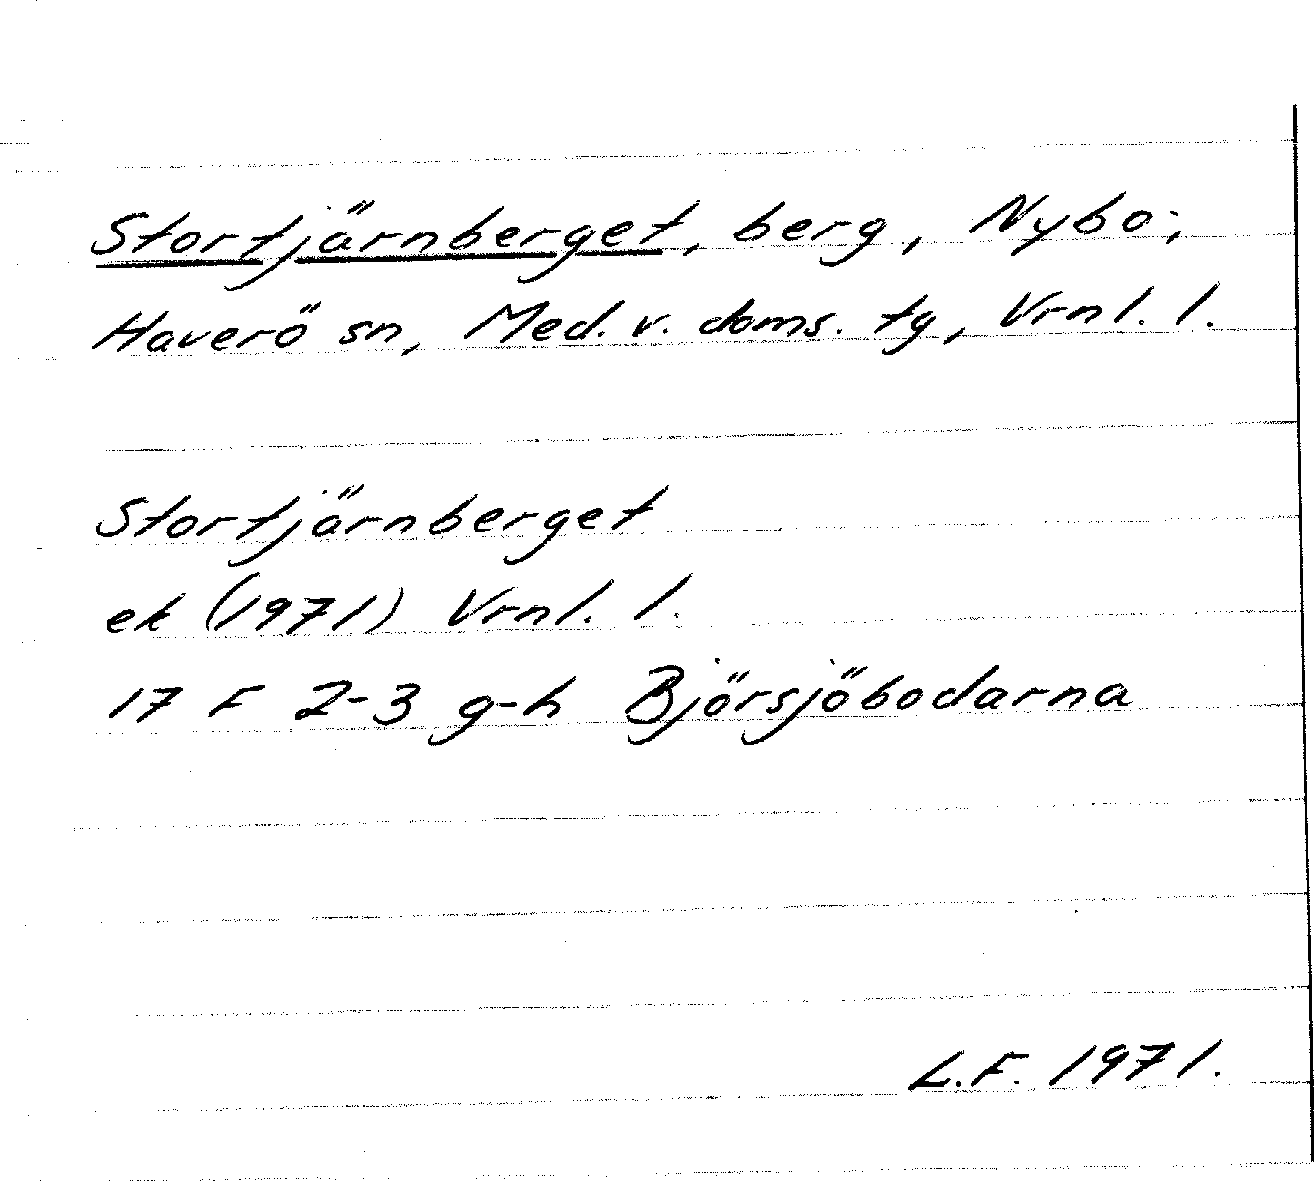 Stortjärnberget, berg, Nybo;
Haverö sn, Med. v. doms. tg, Vrnl. l.
Stortjärnberget
ek (1971) Vrnl. l.
17 F 2-3 g-h Björsjöbodarna
L.F. 1971.